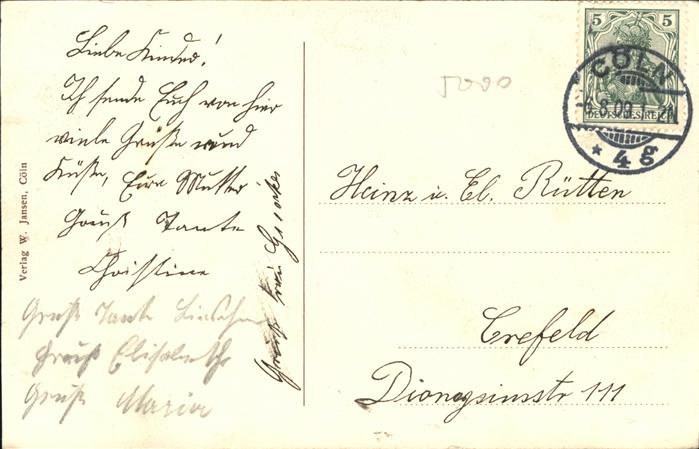 Liebe Kinder!
Ich sende Euch von hier
viele Grüße und
Küße, Eure Mutter
Gruß Tante
Christine
Gruß Tante
Gruß Elisabeth
Gruß Maria
Gruß Frau
Verlag W. Jansen, Cöln
5000
5 5
DEUTSCHES REICH
CÖLN
8.09.1
* 4g
Heinz u. El. Rütten
Crefeld
Dionysiusstr 111